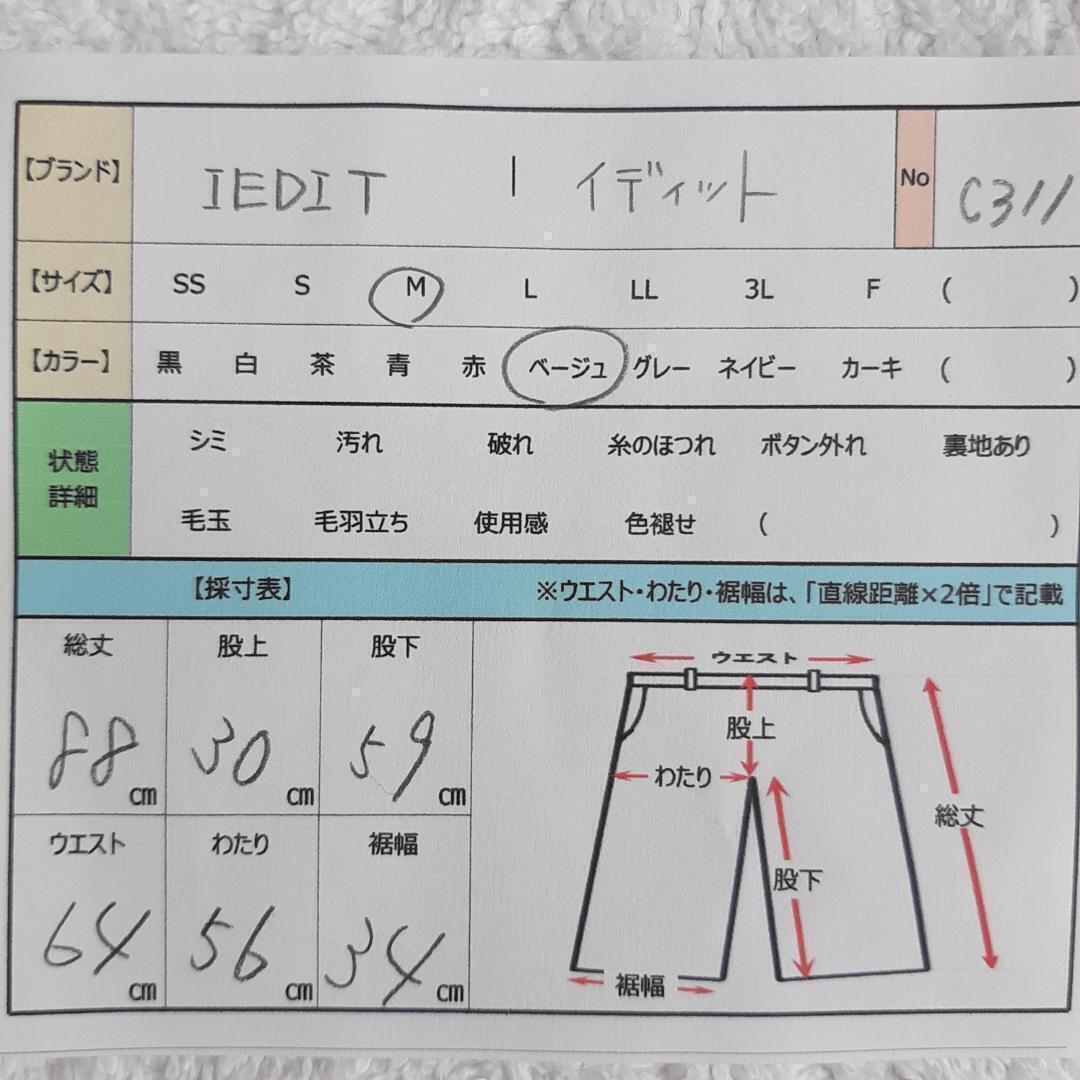 【ブランド】 IEDIT | イディット No C311
【サイズ】 SS S M L LL 3L F ( )
【カラー】 黒 白 茶 青 赤 ベージュ グレー ネイビー カーキ ( )
状態詳細
シミ 汚れ 破れ 糸のほつれ ボタン外れ 裏地あり
毛玉 毛羽立ち 使用感 色褪せ ( )
【採寸表】 ※ウエスト・わたり・裾幅は、「直線距離×2倍」で記載
総丈 股上 股下
88cm 30cm 59cm
ウエスト わたり 裾幅
64cm 56cm 34cm
ウエスト
股上
わたり
総丈
股下
裾幅